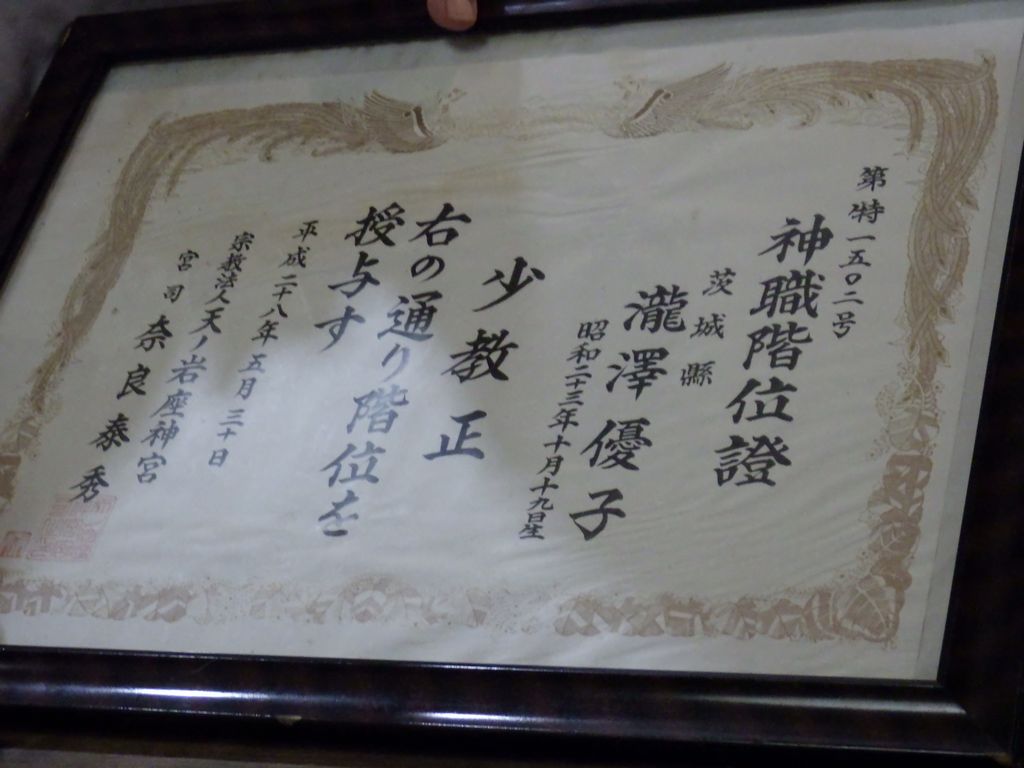 第特一五〇二号
神職階位證
茨城縣
瀧澤優子
昭和二十三年十月十九日生
少教正
右の通り階位を
授与す
平成二十八年五月三十日
宗教法人天ノ岩座神宮
宮司奈良泰秀